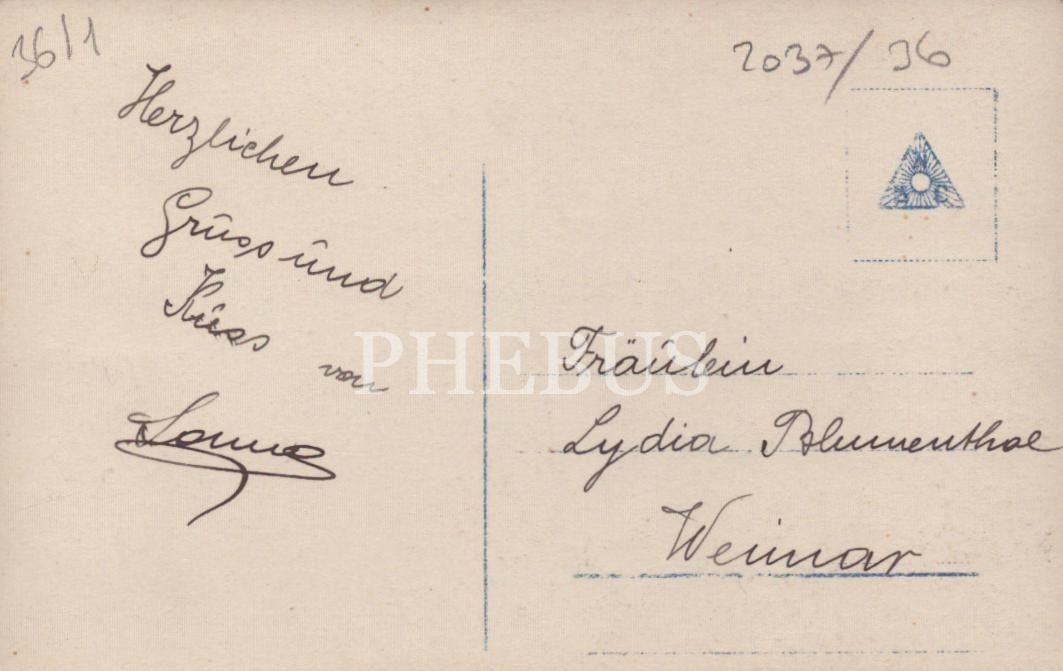 36/1
2037/36
Herzlichen
Grüss und
Küss von
Fräulein
Lydia Blumenthal
Weimar
PHEBUS